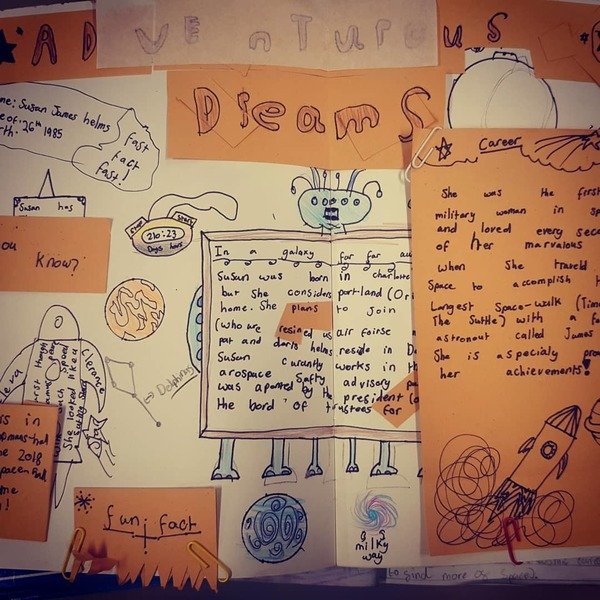 ADVENTUROUS
Dreams
me: Susan James helms
e of 26th 1985
rth.
fast
fact
fast!
Susan has
ou
know?
Stop
Start
210:23
Days hours
Career
She was the first
military woman in sp
and loved every sec
of her marvalous
when She traveld
Space to accomplish t
Longest Space-walk (Time
The Suttle) with a fe
astronaut called James
She is aspecialy pro
her achievements!
In a galaxy far far au
Susan was born in charlotte
but She considers portland (Or
home. She plans to join
(who are resined us air foirse
pat and doris helms reside in De
Susan curantly works in th
arospace Safty advisory pa
was aponted by the president (o
the bord of trustees for
Dolphins
Clarence
She looked like a
is in
2018
me
fun fact
milky
way
to find more as space).